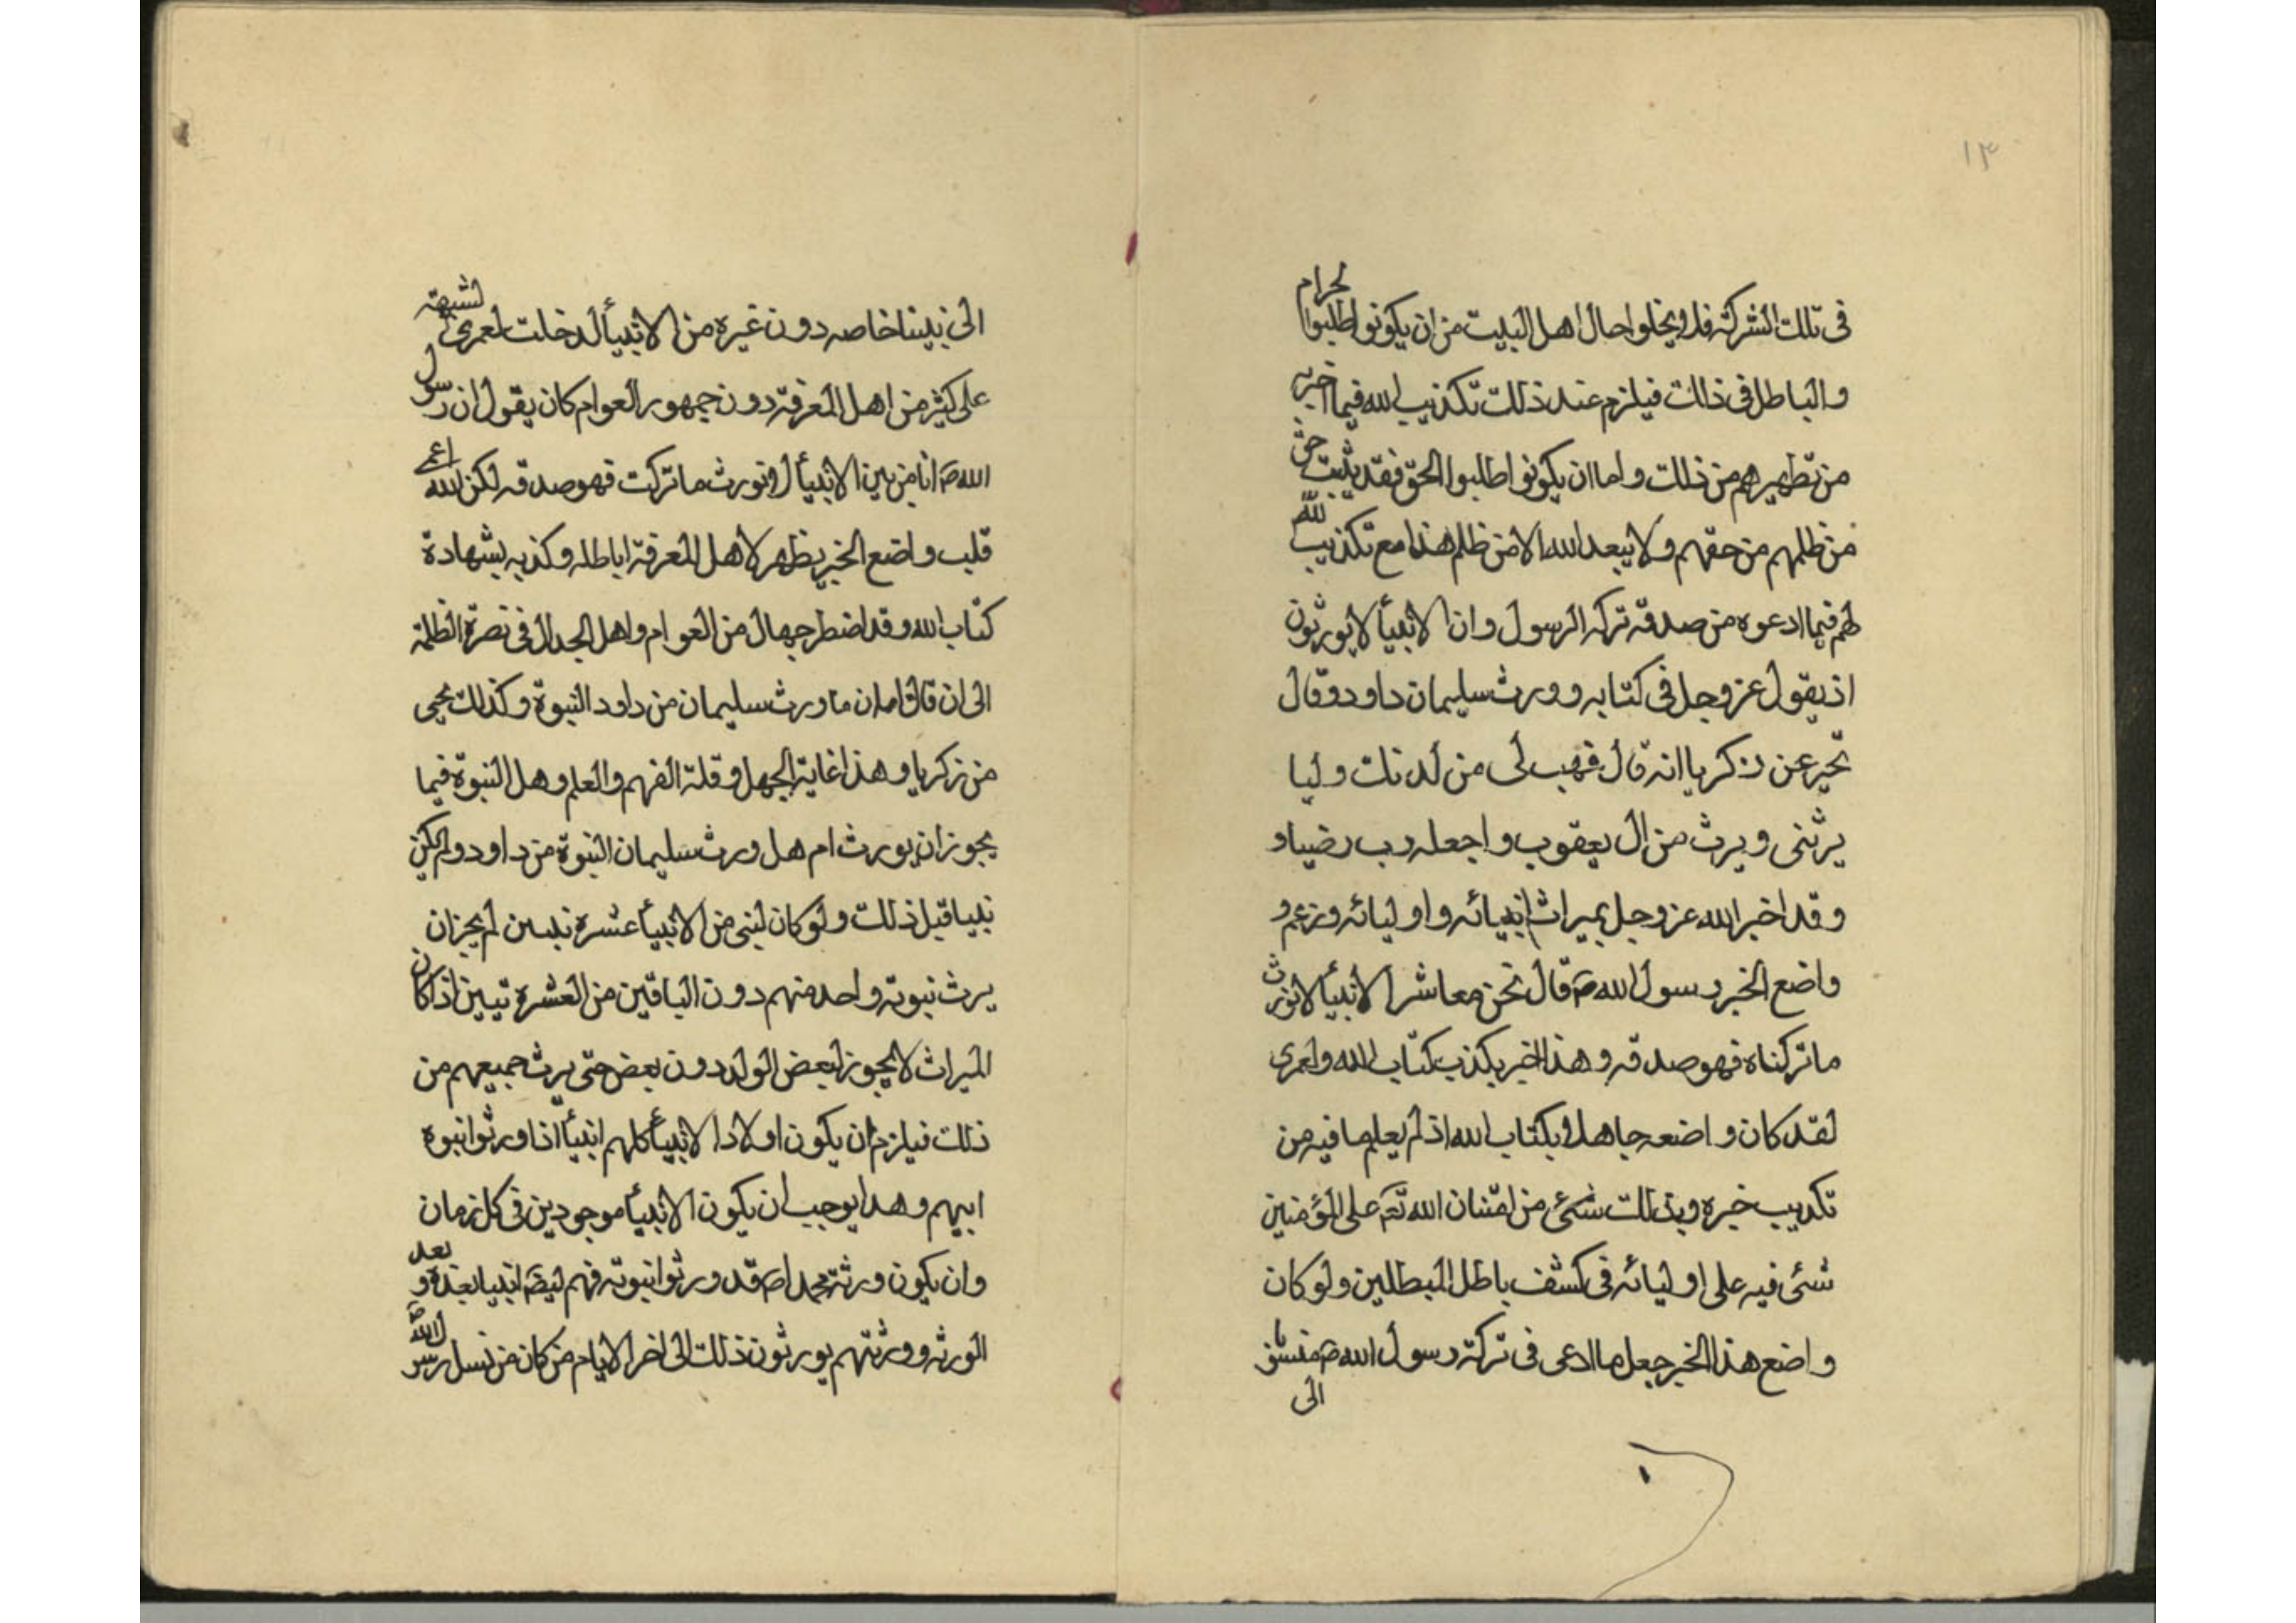 ١٣
فى تلك الشركة فلا يخلوا حال اهل البيت من ان يكونوا طلبوا الحرام
والباطل فى ذلك فيلزم عند ذلك تكذيب الله فيما اخبر به
من تطهيرهم من ذلك واما ان يكونوا طلبوا الحق فقد يثبت حق
من ظلمهم من حقهم ولا يبعد الله الا من ظلم هذا مع تكذيب الله
لهم فيما ادعوه من صدقة تركة الرسول وان الانبيأ لا يورثون
اذ يقول عز وجل فى كتابه وورث سليمان داود وقال
تخبر عن زكريا انه قال فهب لى من لدنك وليا
يرثنى ويرث من ال يعقوب واجعله رب رضيا و
وقد اخبر الله عز وجل بميراث انبيائه واوليائه وزعم و
واضع الخبر رسول الله ص قال نحن معاشر الانبيأ لا نورث
ما تركناه فهو صدقه وهذا الخبر يكذب كتاب الله ولعمرى
لقد كان واضعه جاهلا بكتاب الله اذ لم يعلم ما فيه من
تكذيب خبره وبذلك شئ من امتنان الله تع على المؤمنين
شئ فيه على اوليائه فى كشف باطل المبطلين ولو كان
واضع هذا الخبر جعل ما ادعى فى تركة رسول الله ص
الى
الى نبينا خاصه دون غيره من الانبيأ لدخلت لعمرى لشبهته
على كثير من اهل المعرفة دون جمهور العوام كان يقول ان رسول
الله ص انا من بين الانبيأ لا نورث ما تركت فهو صدقه لكن الله اعمى
قلب واضع الخبر يظهر لاهل المعرفة اباطله وكذبه بشهادة
كتاب الله وقد اضطر جهال من العوام واهل الجدال فى نصرة الظلمة
الى ان قالوا ان ما ورث سليمان من داود النبوة وكذلك يحيى
من زكريا وهذا غاية الجهل وقلة الفهم والعلم وهل النبوة فيما
يجوز ان يورث ام هل ورث سليمان النبوة من داود ولم يكن
نبيا قبل ذلك ولو كان لنبى من الانبيأ عشرة نبيين لم يجز ان
يرث نبوته واحد منهم دون الباقين من العشرة تبين اذا كان
الميراث لا يجوز لبعض الولد دون بعض حتى يرث جميعهم من
ذلك فيلزم ان يكون اولاد الانبيأ كلهم انبيأ اذا ورثوا نبوة
ابيهم وهذا يوجب ان يكون الانبيأ موجودين فى كل زمان
وان يكون ورثة محمد ص قد ورثوا نبوته فهم ايضا انبيا بعده و بعد
الورثه وورثتهم يورثون ذلك الى اخر الايام من كان من نسل رسول الله ص